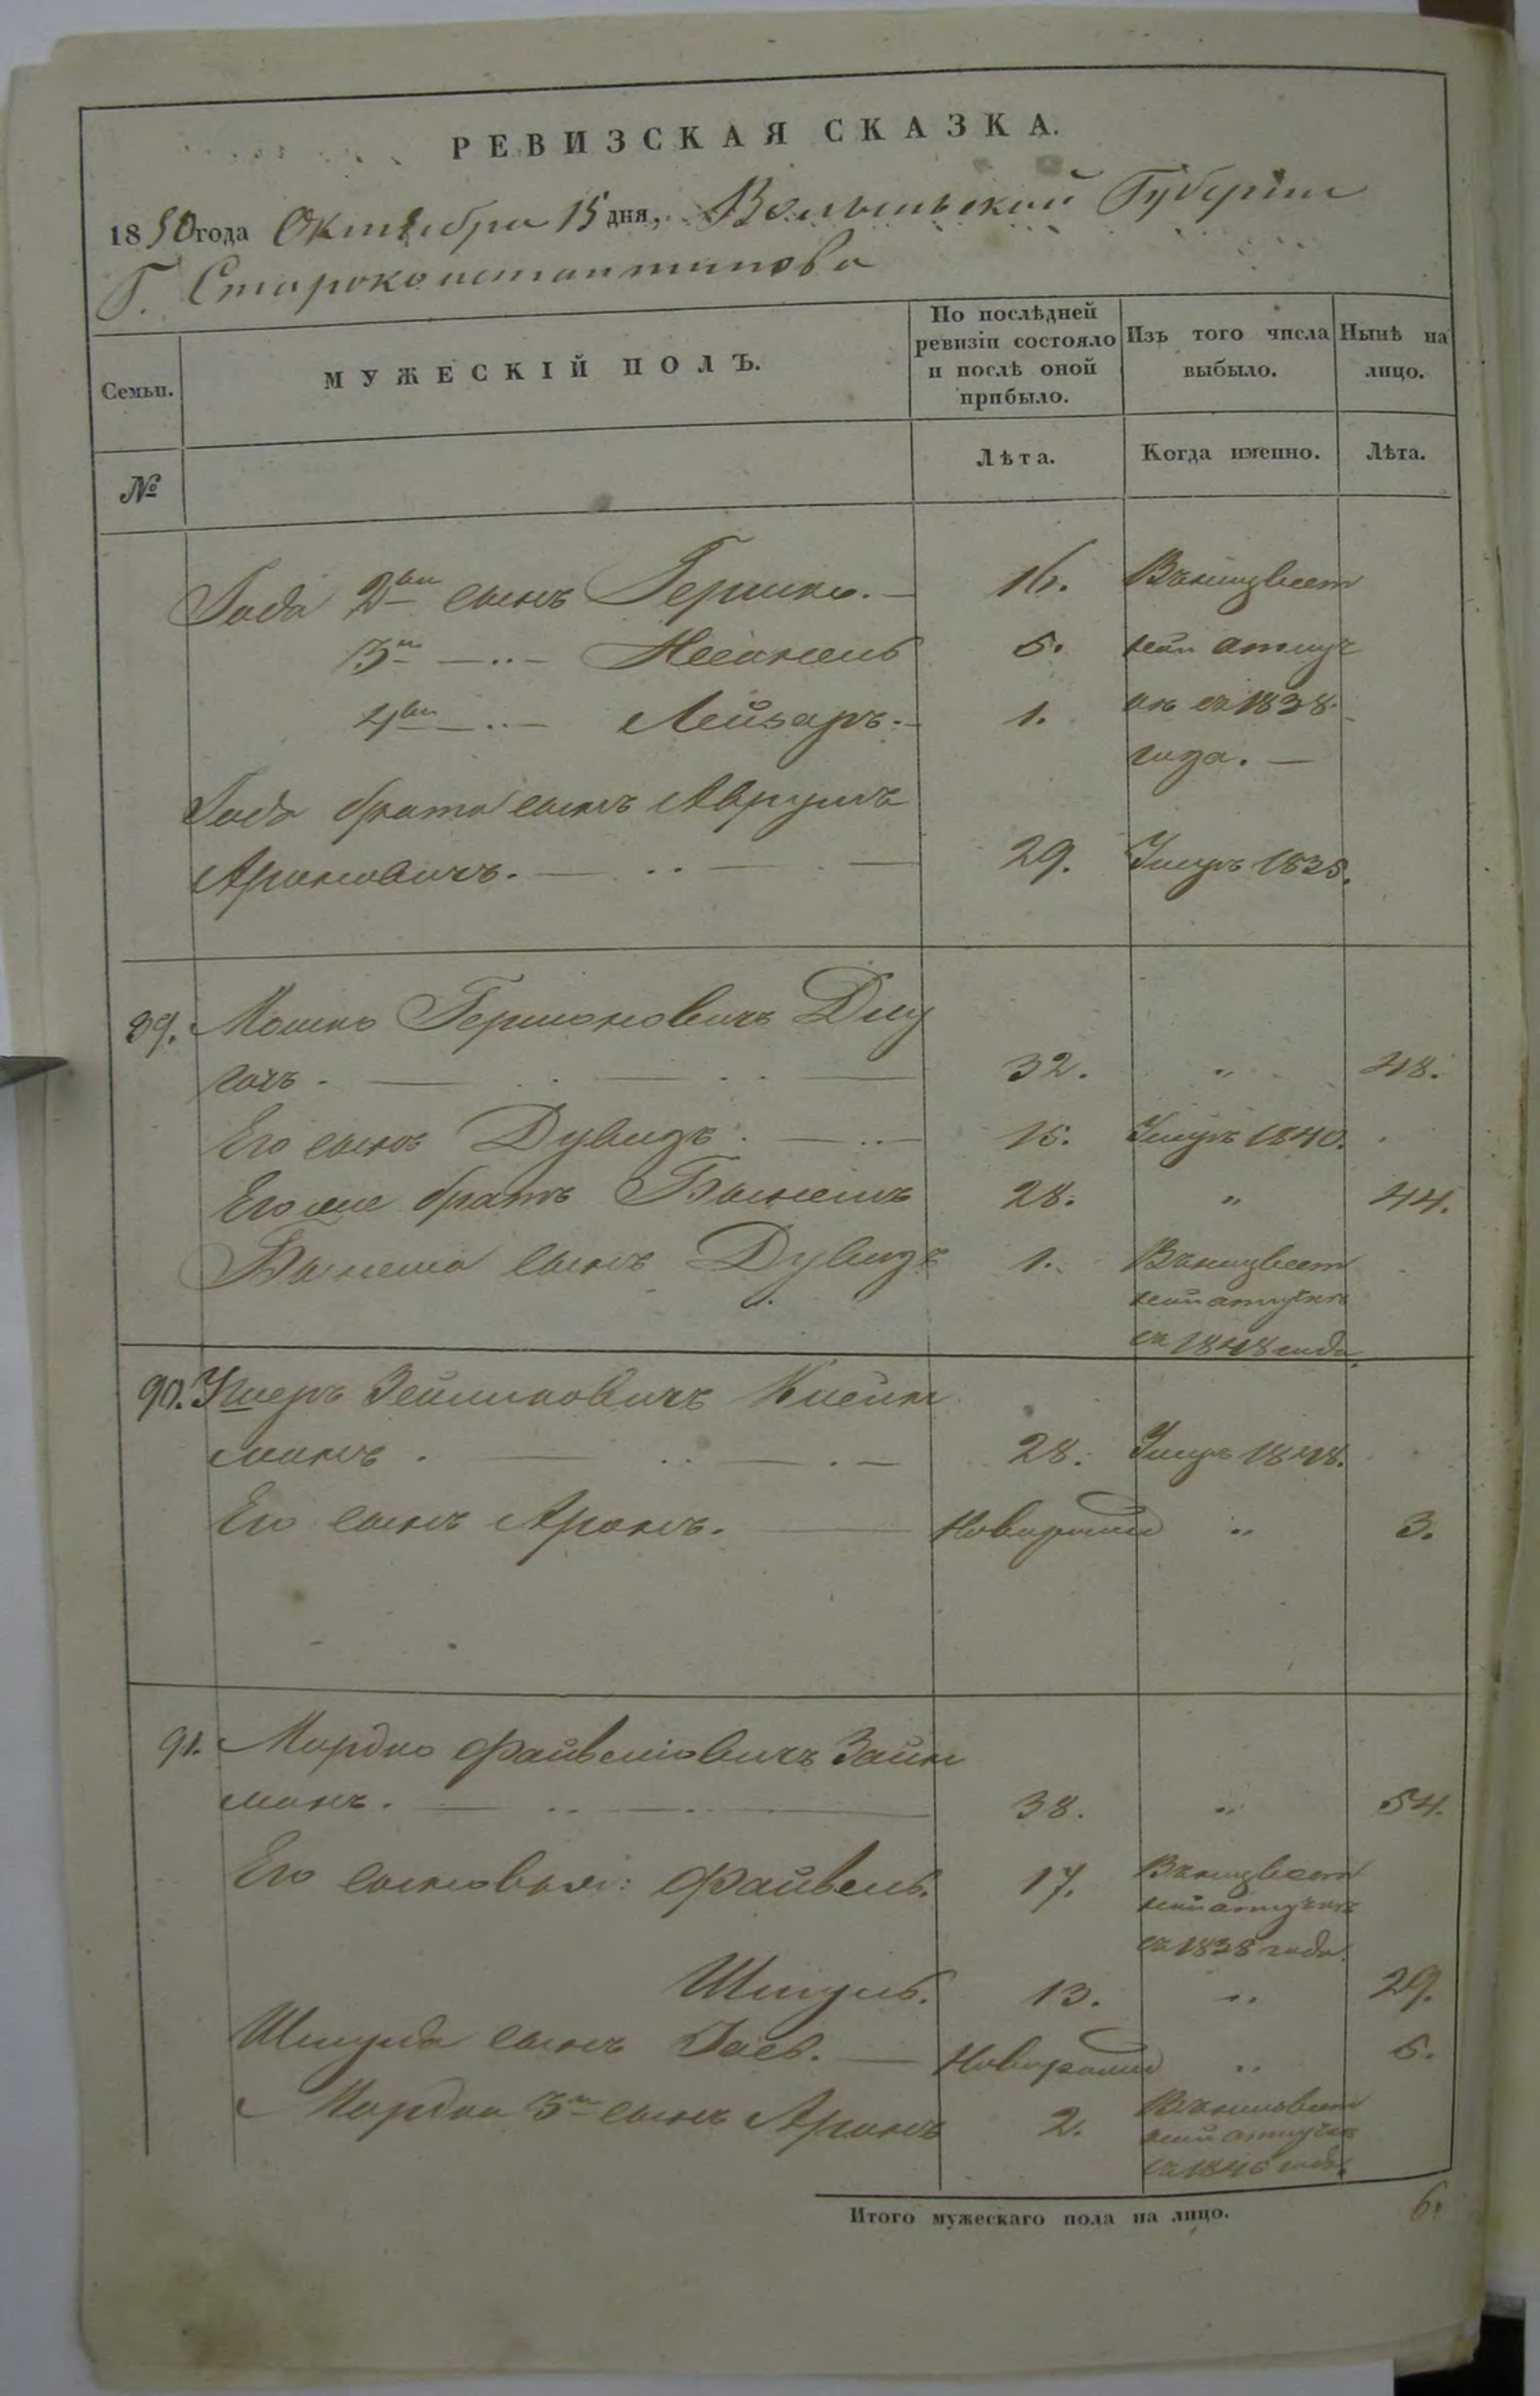 РЕВИЗСКАЯ СКАЗКА.
1850 года Октября 15 дня, Волынской Губернии
Г. Староконстантинова
Семьи.
МУЖЕСКІЙ ПОЛЪ.
По послѣдней ревизіи состояло и послѣ оной прибыло.
Изъ того числа выбыло.
Нынѣ на лицо.
№
Лѣта.
Когда именно.
Лѣта.
2й сынъ Гершко. 16. Въ неизвест
3й Нееонель 5. ной отлуч
4й Лейзаръ. 1. кѣ съ 1838
года.
брата сынъ Аврумъ
Ароновичъ. 29. Умеръ 1835.
89. Мошко Гершоновичъ Длу
гачъ. 32. " 48.
Его сынъ Дувидъ. 15. Умеръ 1840.
Его же братъ Бынемъ 28. " 44.
Бынема сынъ Дувидъ 1. Въ неизвест
ной отлучкѣ
съ 1848 года.
90. Ушеръ Зейликовичъ
манъ. 28. Умеръ 1848.
Его сынъ Аронъ. Новорожд " 3.
91. Мордко Файвелiовичъ Зайн
манъ. 38. " 54.
Его сыновья: Файвель. 17. Въ неизвест
ной отлучкѣ
съ 1838 года.
Шмуль. 13. " 29.
Шмуля сынъ Іось. Новорожд " 5.
Мордка 3й сынъ Аронъ 2. Въ неизвест
ной отлучкѣ
съ 1846 года.
Итого мужескаго пола на лицо. 6.